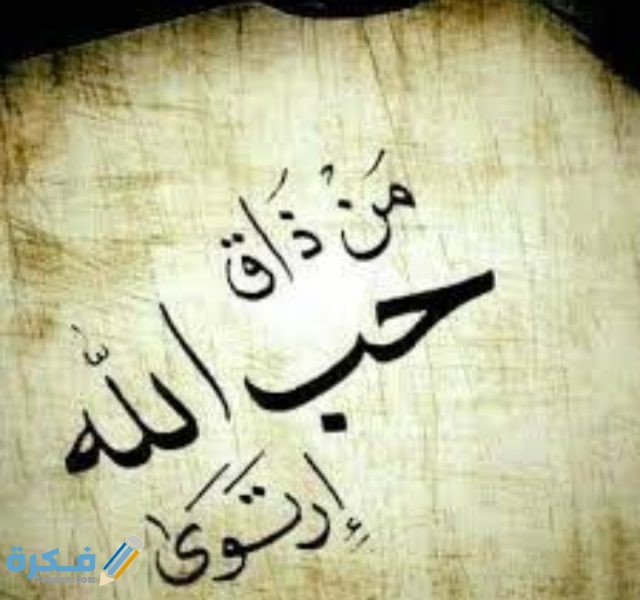 مَنْ ذَاق
حب الله
إِرتَوَىٰ
فكرة